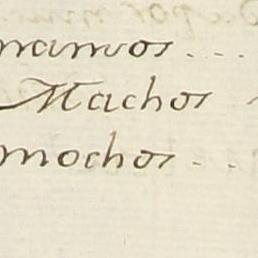 mamos ...
Machos
mochos ...